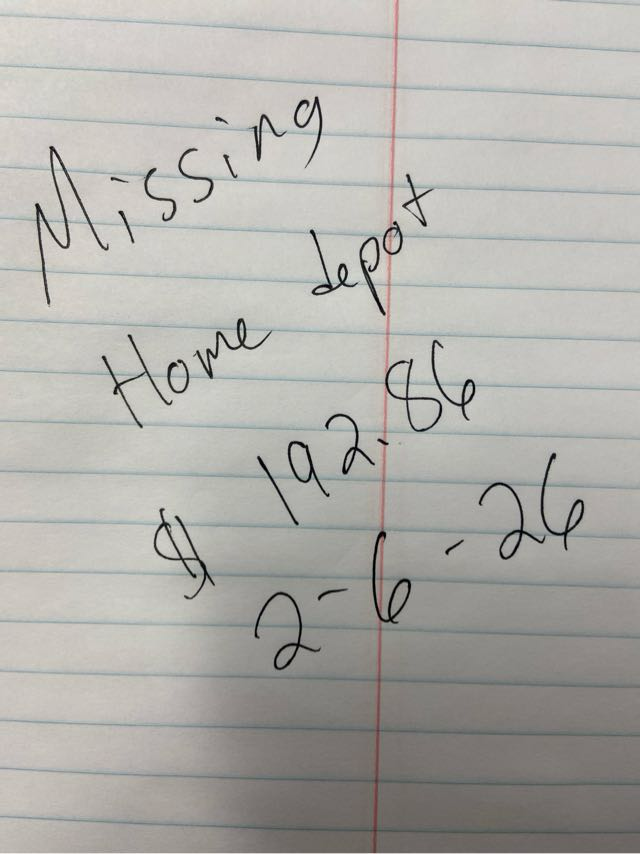 Missing
Home depot
$ 192.86
2-6-26